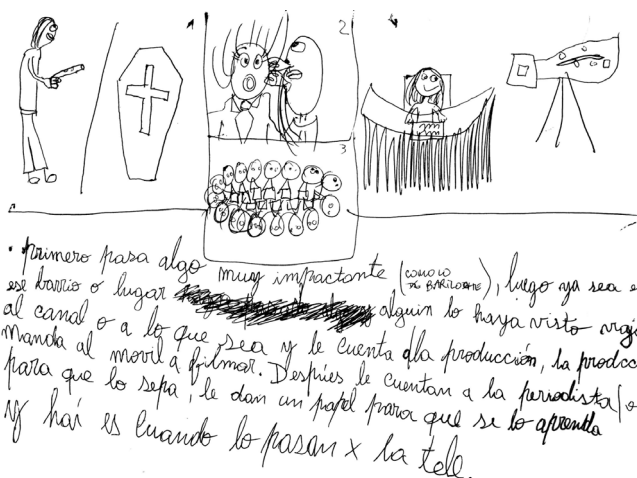 1
2
3
• primero pasa algo muy impactante (COMO LO DE BARILOCHE), luego ya sea e
ese barrio o lugar alguin lo haya visto
al canal o a lo que sea y le cuenta a la producción, la producc
manda al movil a filmar. Después le cuentan a la periodista (o
para que lo sepa, le dan un papel para que se lo aprenda
y hai es cuando lo pasan x la tele.